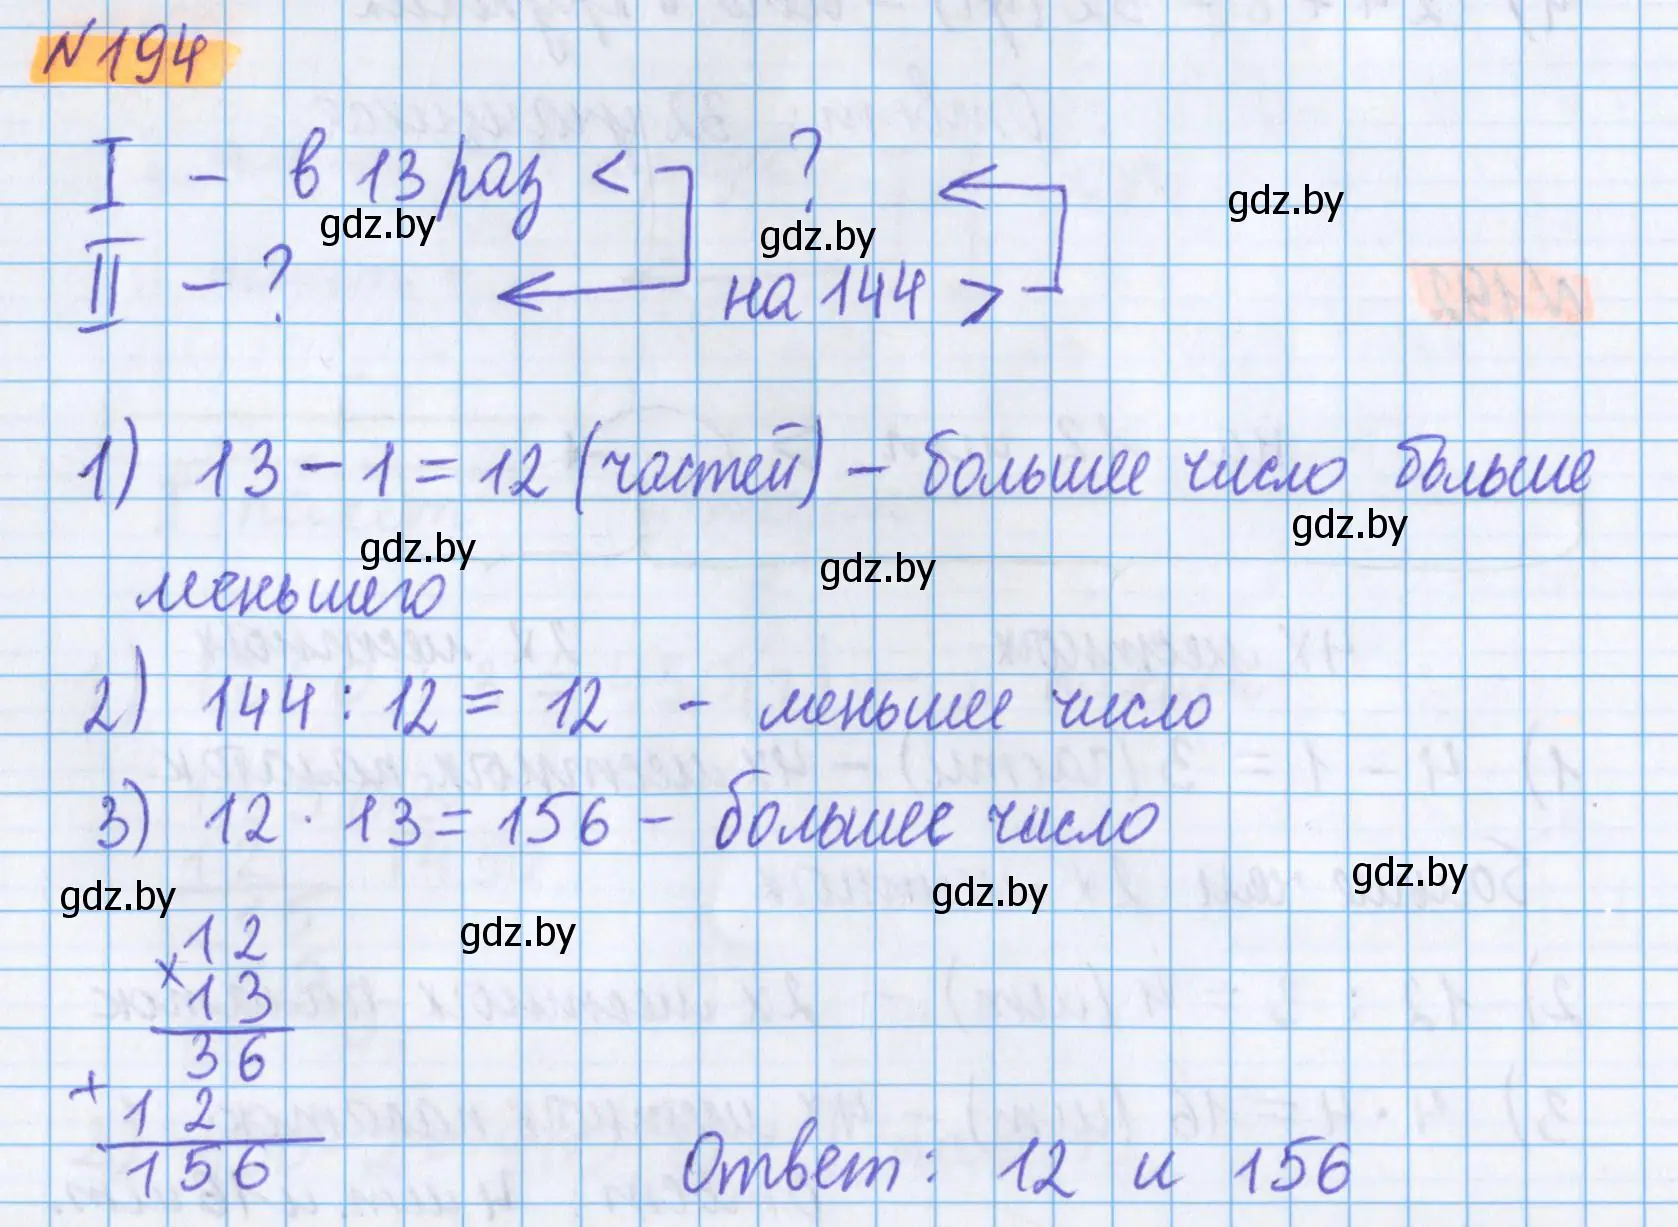 №194
I - в 13 раз < ?
gdz.by gdz.by gdz.by
II - ? на 144 >
1) 13 - 1 = 12 (частей) - большее число больше
gdz.by gdz.by gdz.by
меньшего
2) 144 : 12 = 12 - меньшее число
3) 12 · 13 = 156 - большее число
gdz.by gdz.by gdz.by gdz.by
12
×
13
36
+
12
156
Ответ: 12 и 156